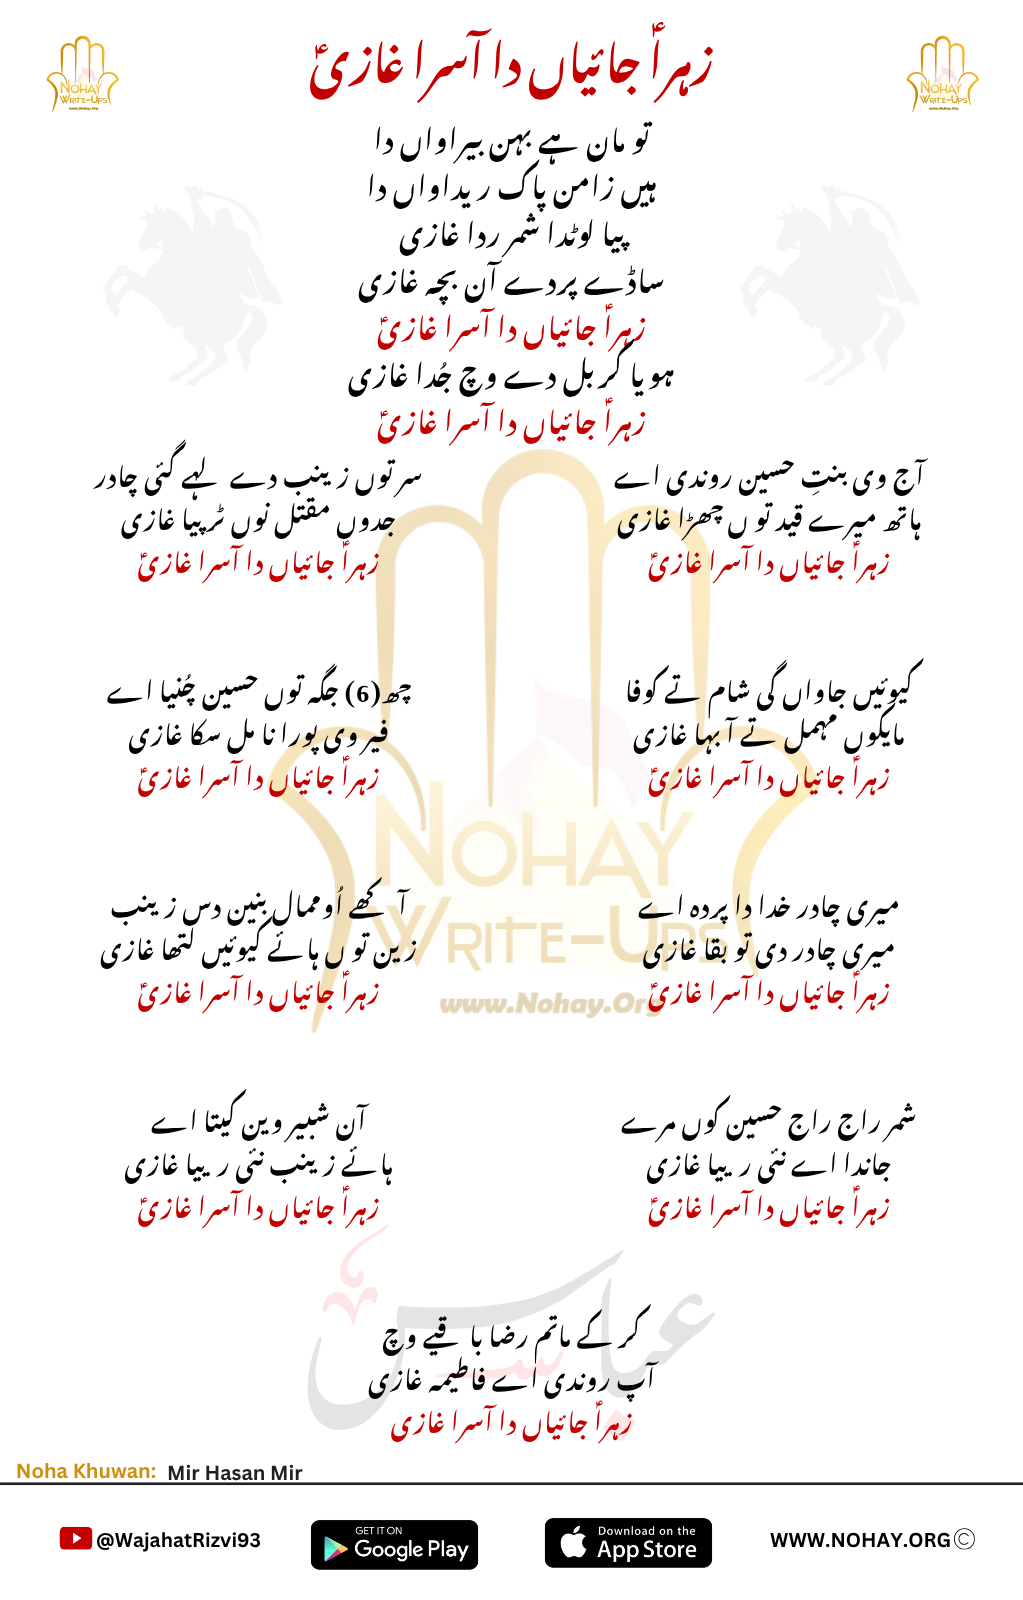 زہراؑ جائیاں دا آسرا غازیؑ
NOHAY
WRITE-UPS
www.Nohay.Org
NOHAY
WRITE-UPS
www.Nohay.Org
تو مان ہے بہن بیراواں دا
ہیں زامن پاک ریداواں دا
پیا لوٹدا شمر ردا غازی
ساڈے پردے آن بچہ غازی
زہراؑ جائیاں دا آسرا غازیؑ
ہویا کربل دے وچ جُدا غازی
زہراؑ جائیاں دا آسرا غازیؑ
آج وی بنتِ حسین روندی اے
ہاتھ میرے قید تو ں چھڑا غازی
زہراؑ جائیاں دا آسرا غازیؑ
سر توں زینب دے لہے گئی چادر
جدوں مقتل نوں ٹرپیا غازی
زہراؑ جائیاں دا آسرا غازیؑ
کیوئیں جاواں گی شام تے کوفا
مایکوں مہمل تے آبہا غازی
زہراؑ جائیاں دا آسرا غازیؑ
چھ(6) جگہ توں حسین چُنیا اے
فیر وی پورا نا مل سکا غازی
زہراؑ جائیاں دا آسرا غازیؑ
میری چادر خدا دا پردہ اے
میری چادر دی تو بقا غازی
زہراؑ جائیاں دا آسرا غازیؑ
آ کھے اُوممال بنین دس زینب
زین تو ں ہائے کیوئیں لتھا غازی
زہراؑ جائیاں دا آسرا غازیؑ
NOHAY
WRITE-UPS
www.Nohay.Org
شمر راج راج حسین کوں مرے
جاندا اے نئی رییا غازی
زہراؑ جائیاں دا آسرا غازیؑ
آن شبیر وین کیتا اے
ہائے زینب نئی رییا غازی
زہراؑ جائیاں دا آسرا غازیؑ
عباس
کر کے ماتم رضا با قیے وچ
آپ روندی اے فاطیمہ غازی
زہراؑ جائیاں دا آسرا غازی
Noha Khuwan: Mir Hasan Mir
@WajahatRizvi93
GET IT ON
Google Play
Download on the
App Store
WWW.NOHAY.ORG©